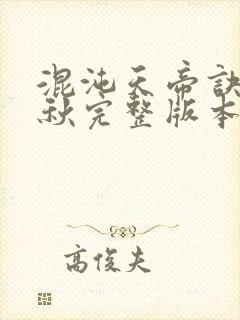 混沌天帝诀
秋完整版本
高俊夫